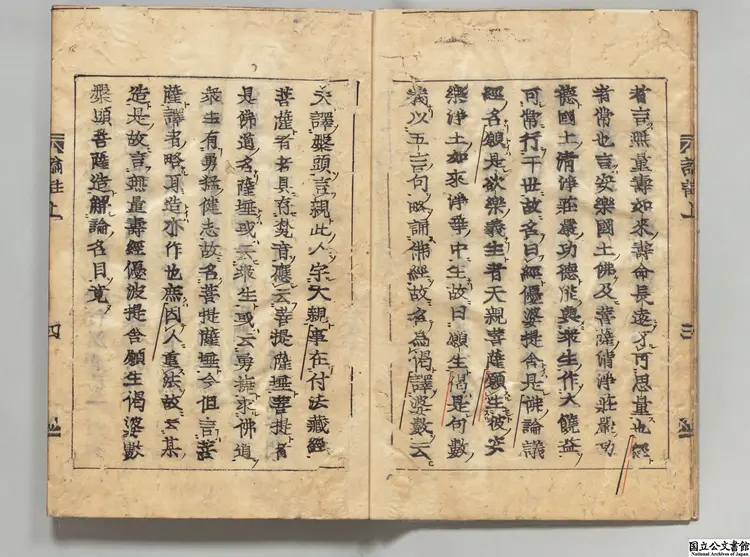 者言無量壽如來壽命長遠不可思量也經
者常也言安樂國土佛及菩薩清淨莊嚴功
德國土清淨莊嚴功德能與衆生作大饒益
可常行于世故名曰經優婆提舍是佛論議
經名願是欲樂義生者天親菩薩願生彼安
樂淨土如來淨華中生故曰願生偈是句數
義以五言句略誦佛經故名為偈譯婆數云
天譯槃頭言親此人字天親事在付法藏經
菩薩者若具存梵音應云菩提薩埵菩提者
是佛道名薩埵或云衆生或云勇猛求佛道
衆生有勇猛健志故名菩提薩埵今但言菩
薩譯者略耳造亦作也庶因人重法故云某
造是故言無量壽經優波提舍願生偈婆數
槃頭菩薩造解論名目竟
論註上 三
論註上 四
国立公文書館
National Archives of Japan